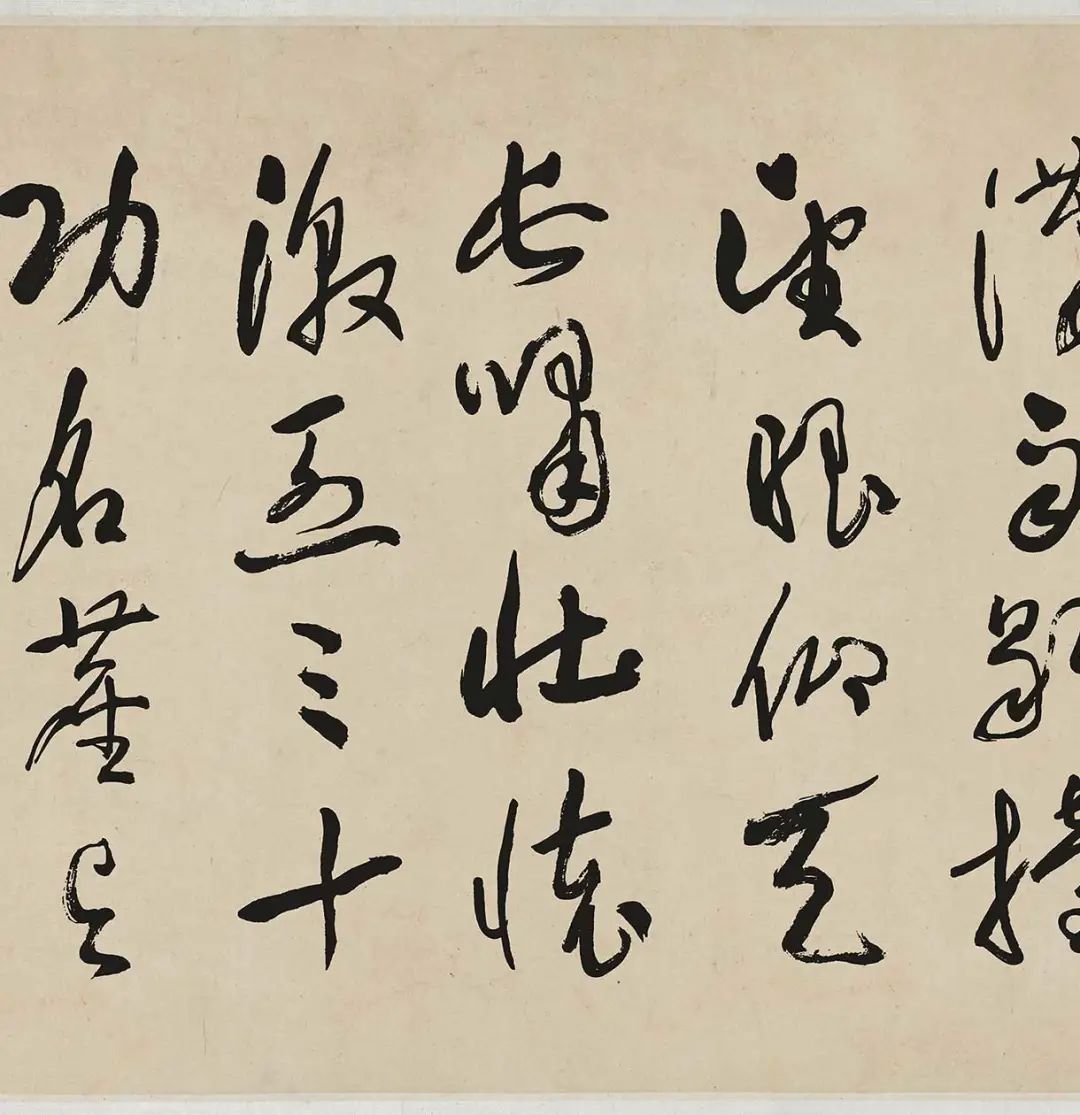 瀟雨歇擡
望眼仰天
長嘯壯懷
激烈三十
功名塵与